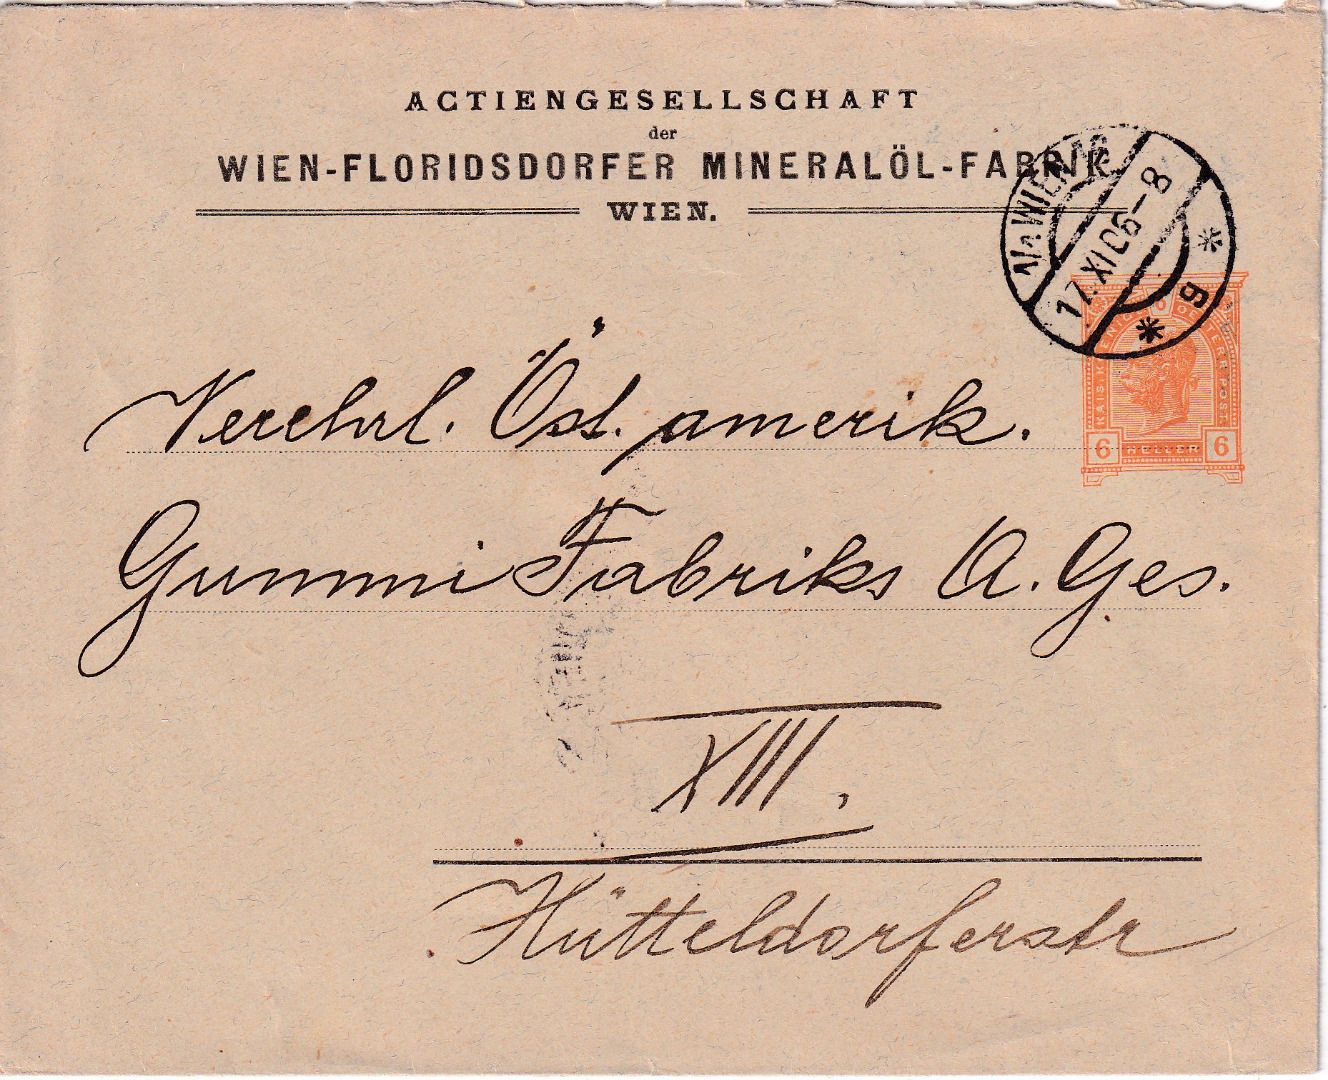 ACTIENGESELLSCHAFT
der
WIEN-FLORIDSDORFER MINERALÖL-FABRIK
WIEN.
1/1 WIEN
17.XI.06-8
9
KAIS. KOENIGL. OESTERR. POST
6 HELLER 6
Verehrl. Öst. amerik.
Gummi Fabriks A. Ges.
XIII.
Hütteldorferstr